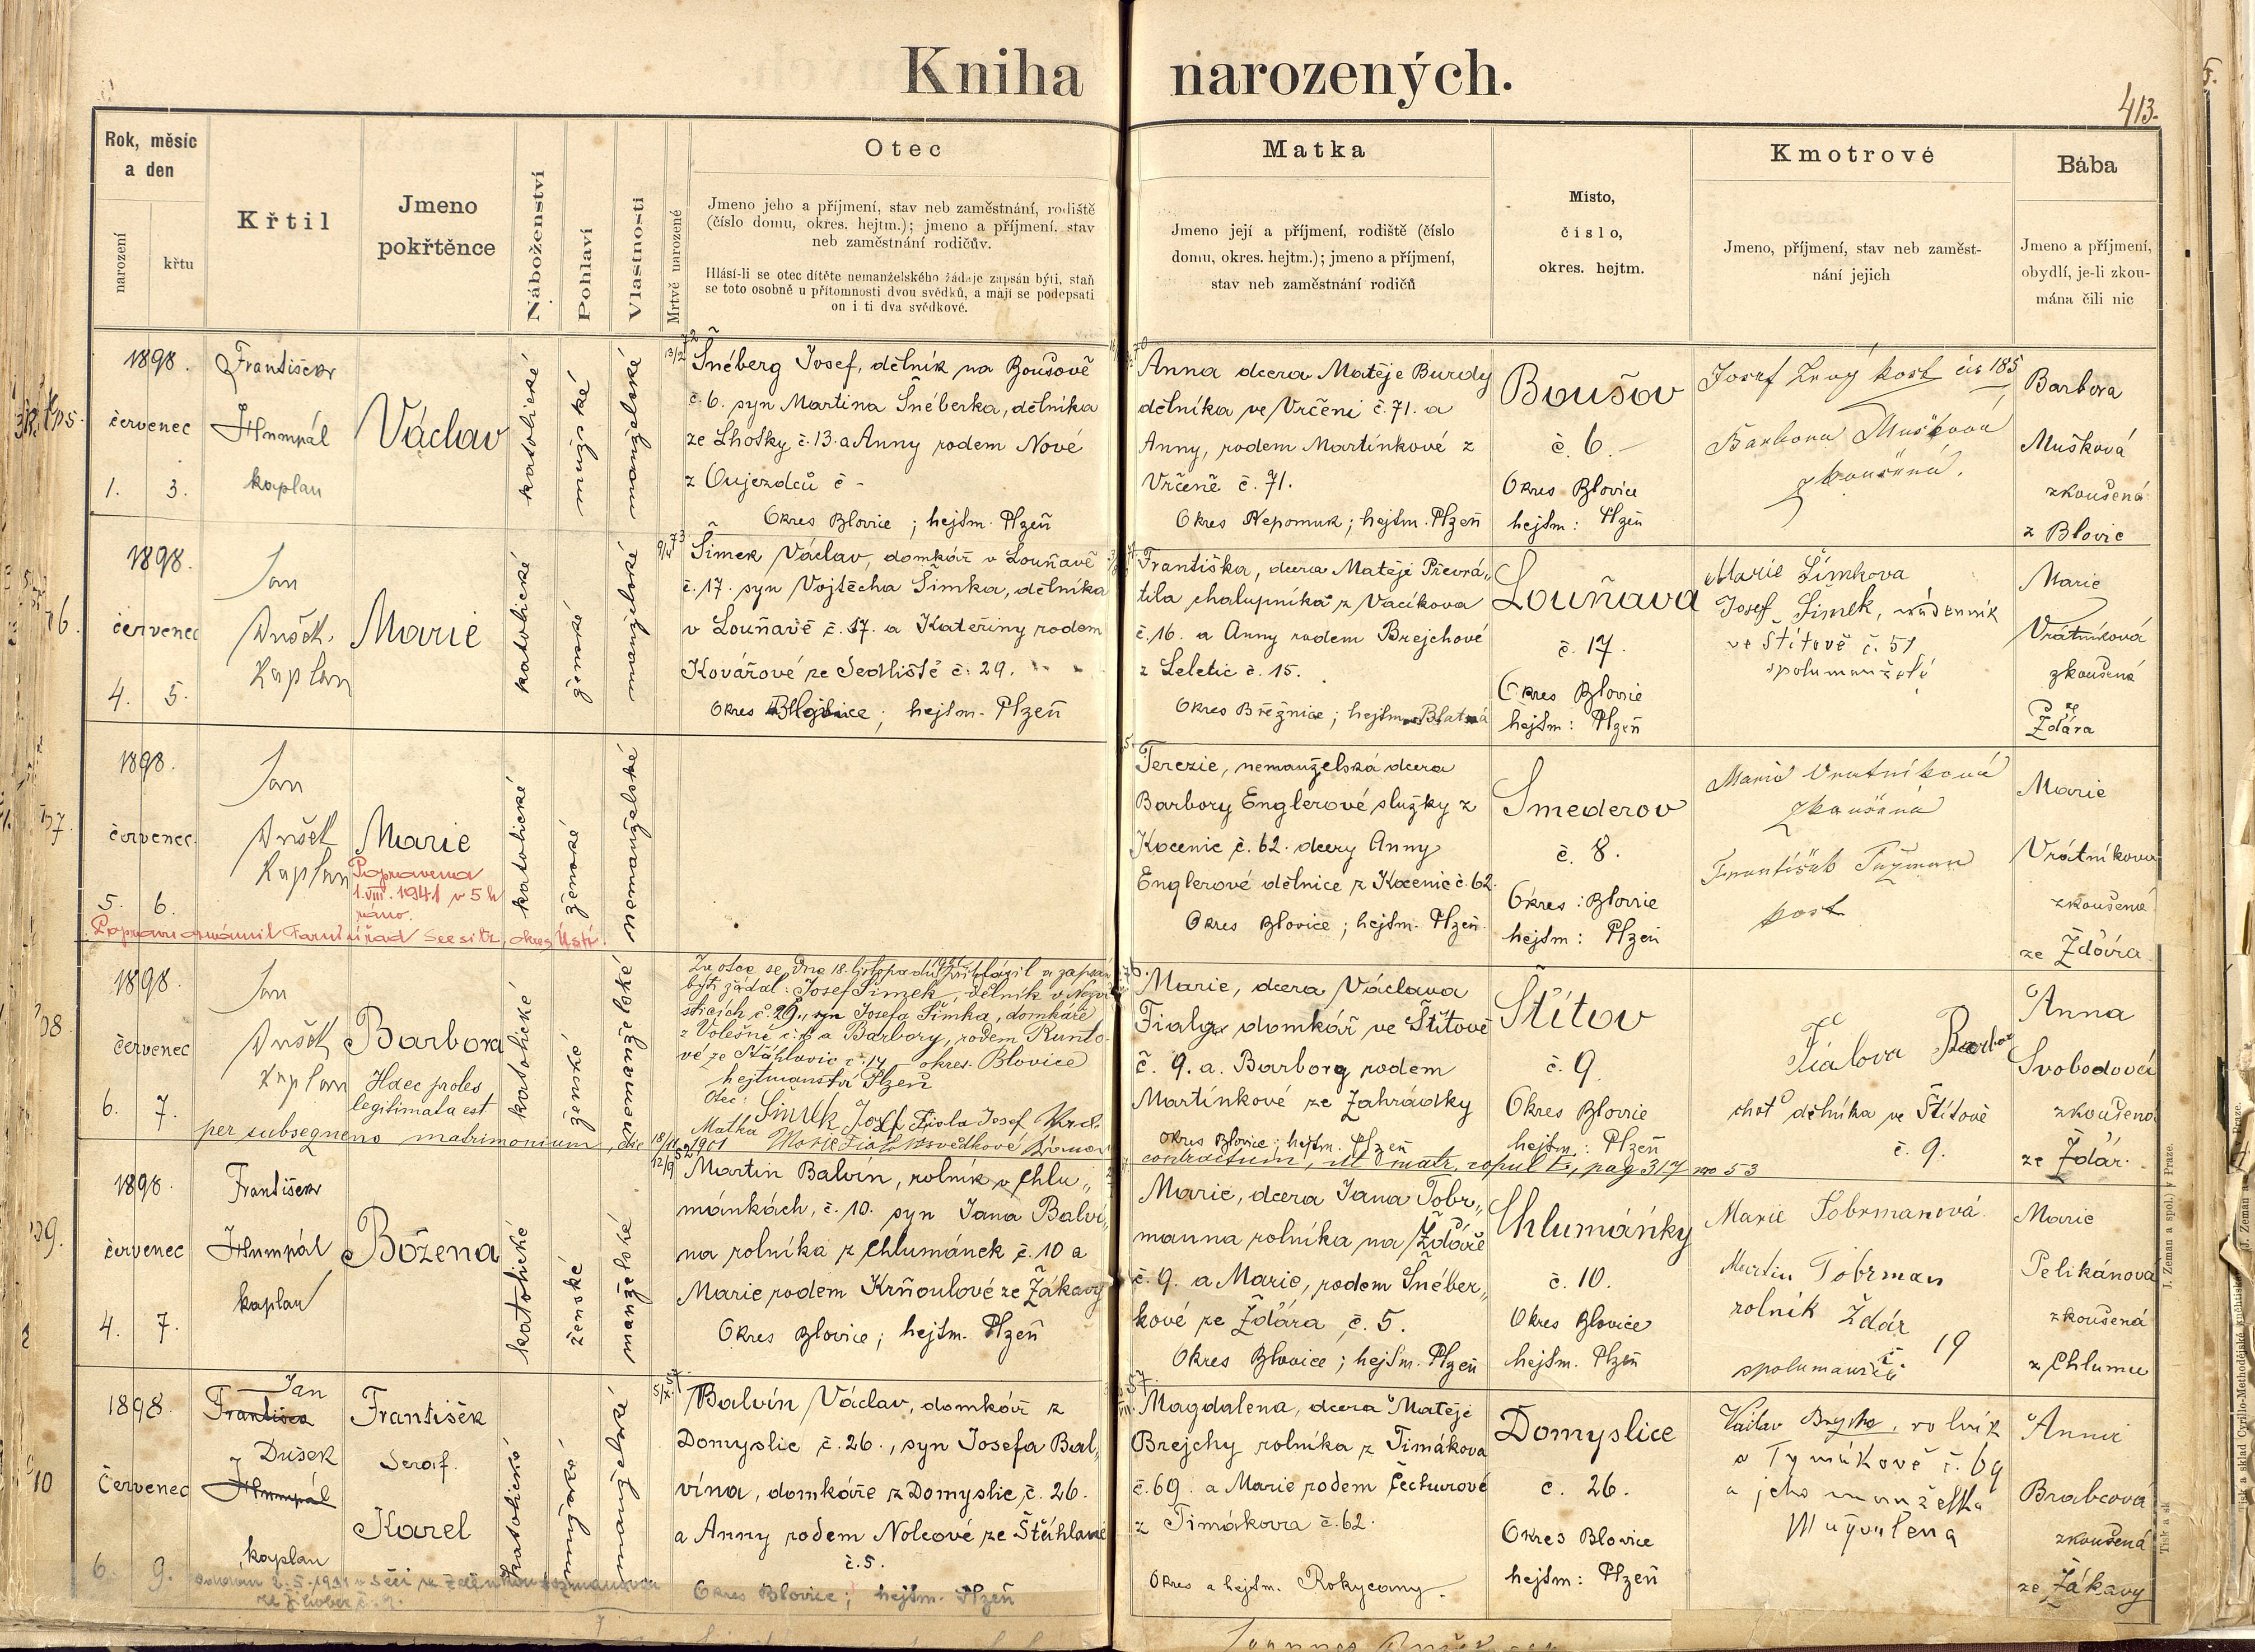 Kniha narozených.
413.
Rok, měsíc
a den
narození
křtu
Křtil
Jmeno
pokřtěnce
Náboženství
Pohlaví
Vlastnosti
Mrtvě narozené
Otec
Jmeno jeho a příjmení, stav neb zaměstnání, rodiště
(číslo domu, okres. hejtm.); jmeno a příjmení, stav
neb zaměstnání rodičův.
Hlásí-li se otec dítěte nemanželského žádaje zapsán býti, staň
se toto osobně u přítomnosti dvou svědků, a mají se podepsati
on i ti dva svědkové.
Matka
Jmeno její a příjmení, rodiště (číslo
domu, okres. hejtm.); jmeno a příjmení,
stav neb zaměstnání rodičů
Místo,
číslo,
okres. hejtm.
Kmotrové
Jmeno, příjmení, stav neb zaměst-
nání jejich
Bába
Jmeno a příjmení,
obydlí, je-li zkou-
mána čili nic
1898.
červenec
1. 3.
František
Humpál
kaplan
Václav
katolické
mužské
manželské
Šnéberg Josef, dělník na Boušově
č. 6. syn Martina Šnéberka, dělníka
ze Lhotky č. 13. a Anny rodem Nové
z Oujezdců č -
Okres Blovice ; hejtm. Plzeň
Anna dcera Matěje Burdy
dělníka ve Vrčeni č. 71. a
Anny, rodem Martínkové z
Vrčeně č. 71.
Okres Nepomuk ; hejtm. Plzeň
Boušov
č. 6.
Okres Blovice
hejtm : Plzeň
Josef
Barbora Mušková
zkoušená.
Barbora
Mušková
zkoušená
z Blovic
1898.
červenec
4. 5.
Jan
Dušek
Kaplan
Marie
katolické
ženské
manželské
Šimek Václav, domkář v Louňavě
č. 17. syn Vojtěcha Šimka, dělníka
v Louňavě č. 17. a Kateřiny rodem
Kovářové ze Sedliště č. 29.
Okres Blovice ; hejtm. Plzeň
Františka, dcera Matěje Převrá„
tila chalupníka z Vacíkova
č. 16. a Anny rodem Brejchové
z Leletic č. 15.
Okres Březnice ; hejtm. Blatná
Louňava
č. 17.
Okres Blovice
hejtm : Plzeň
Marie Šimkova
Josef Šimek,
ve Štítově č. 51
spolumanželé
Marie
Vrátníková
zkoušená
ze
Žďára
1898.
červenec.
5. 6.
Jan
Dušek
Kaplan
Marie
Popravena
1. VIII. 1941 v 5 h
ráno.
Popravu oznámil Farní úřad
katolické
ženské
nemanželské
Terezie, nemanželská dcera
Barbory Englerové služky z
Kocenic č. 62. dcery Anny
Englerové dělnice z Kocenic č. 62.
Okres Blovice ; hejtm. Plzeň
Smederov
č. 8.
Okres : Blovice
hejtm : Plzeň
Marie Vratníková
zkoušená
František
Marie
Vrátníkova
zkoušená
ze Žďára
1898.
červenec
6. 7.
Jan
Dušek
Kaplan
Barbora
Haec proles
legitimata est
per subsequens matrimonium, die 18/11 1901
katolické
ženské
nemanželské
Za otce se dne 18. listopadu 1901 přihlásil a zapsán
býti žádal : Josef Šimek, dělník v
č. 29., syn Josefa Šimka, domkáře
z Volešné č. a Barbory, rodem
ve ze č. 14 okres. Blovice
hejtmanství Plzeň
Otec : Šimek Josef Fiala Josef
Matka Marie Fialová svědkové
Marie, dcera Václava
Fialy domkář ve Štítově
č. 9. a. Barbory rodem
Martínkové ze Zahrádky
Okres Blovice ; hejtm. Plzeň
contractum, ut matr. copul. pag 317 no 53
Štítov
č. 9.
Okres Blovice
hejtm : Plzeň
Fialova Barbora
choť dělníka ve Štítově
č. 9.
Anna
Svobodová
zkoušena
ze Žďár.
1898.
červenec
4. 7.
František
Humpál
kaplan
Božena
katolické
ženské
manželské
Martin Balvín, rolník v Chlu„
mánkách, č. 10. syn Jana Balví„
na rolníka z Chlumánek č. 10 a
Marie rodem Krňoulové ze Žákavy
Okres Blovice ; hejtm. Plzeň
Marie, dcera Jana Tobr„
manna rolníka na Žďáře
č. 9. a Marie, rodem Šnéber„
kové ze Žďára č. 5.
Okres Blovice ; hejtm. Plzeň
Chlumánky
č. 10.
Okres Blovice
hejtm. Plzeň
Marie Tobrmanová
Martin Tobrman
rolník Ždár
19
spolumanželé
Marie
Pelikánova
zkoušená
z Chlumu
1898.
Červenec
6. 9.
Jan
Dušek
kaplan
František
Seraf.
Karel
katolické
mužské
manželské
Balvín Václav, domkář z
Domyslic č. 26., syn Josefa Bal„
vína, domkáře z Domyslic, č. 26.
a Anny rodem Nolcové ze Štáhlavic
č. 5.
Okres Blovice ; hejtm. Plzeň
Magdalena, dcera Matěje
Brejchy rolníka z Timákova
č. 69. a Marie rodem Čechurové
z Timákova č. 62.
Okres a hejtm. Rokycany.
Domyslice
č. 26.
Okres Blovice
hejtm : Plzeň
Václav Brejcha, rolník
v Tymákově č. 69
a jeho manželka
Magdalena
Anna
Brabcová
zkoušená
ze Žákavy